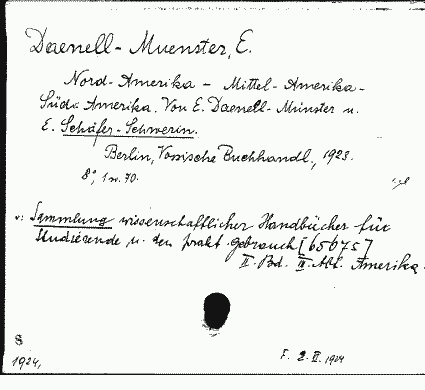 Daenell-Muenster, E.
Nord-Amerika – Mittel-Amerika –
Süd-Amerika. Von E. Daenell-Münster u.
E. Schäfer-Schwerin.
Berlin, Vossische Buchhandl., 1923.
8°,
v: Sammlung wissenschaftlicher Handbücher für
Studierende u. den prakt. Gebrauch [65675]
II. Bd. III. Abt. Amerika.
8
1924,
F. 2. II. 1924